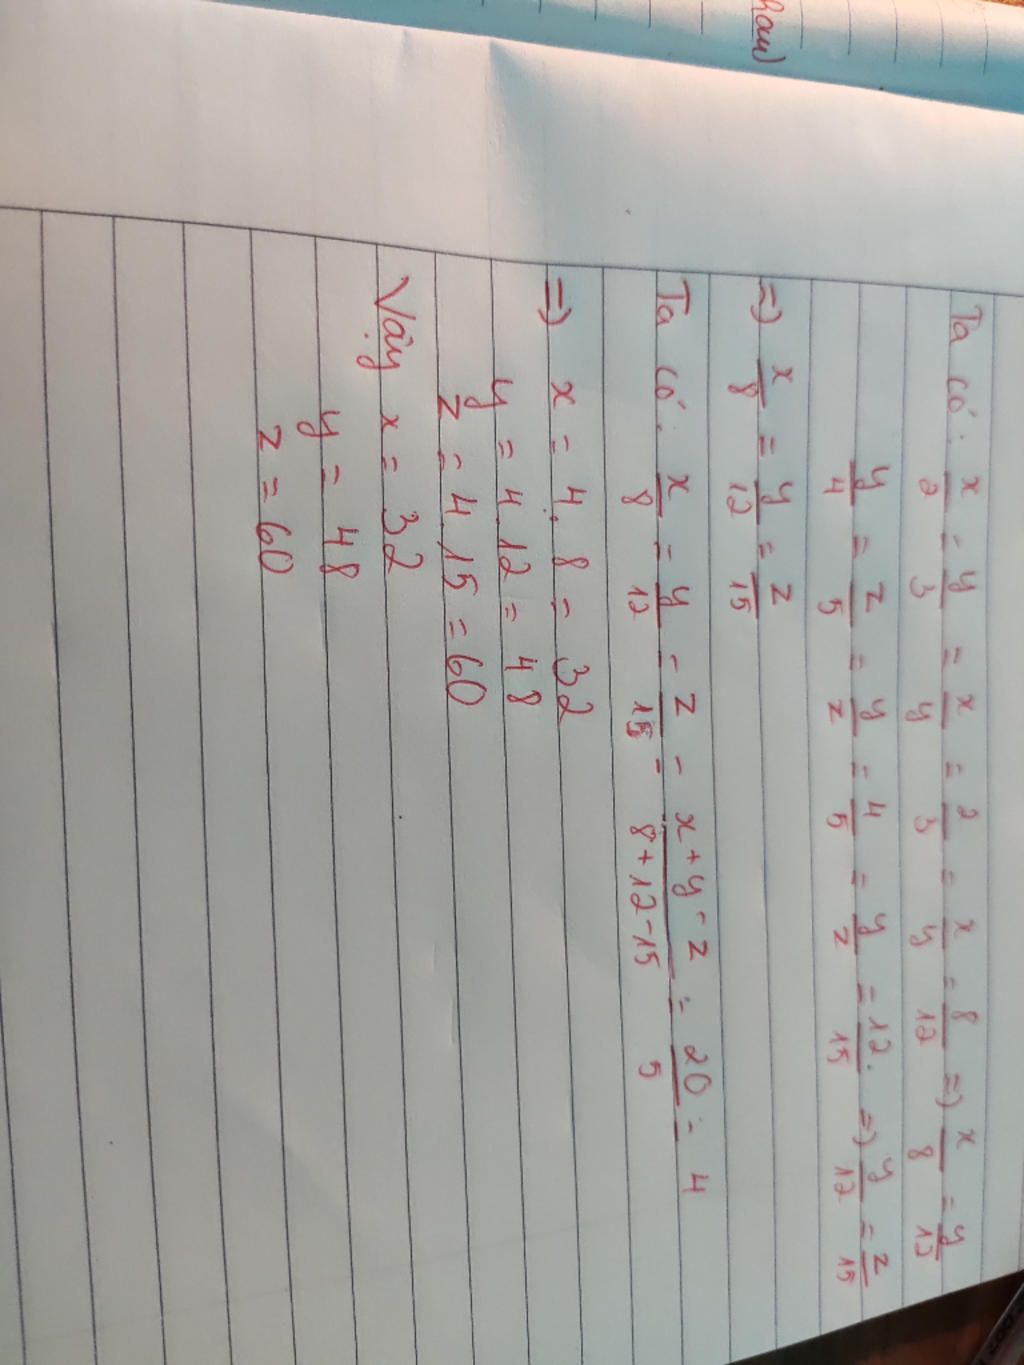 Ta có: x/2 = y/3 = x/y = 2/3 = x/y = 8/12 => x/8 = y/12
y/4 = z/5 = y/z = 4/5 = y/z = 12/15. => y/12 = z/15
=> x/8 = y/12 = z/15
Ta có: x/8 = y/12 = z/15 = x+y-z/8+12-15 = 20/5 = 4
=> x = 4.8 = 32
y = 4.12 = 48
z = 4.15 = 60
Vậy x = 32
y = 48
z = 60